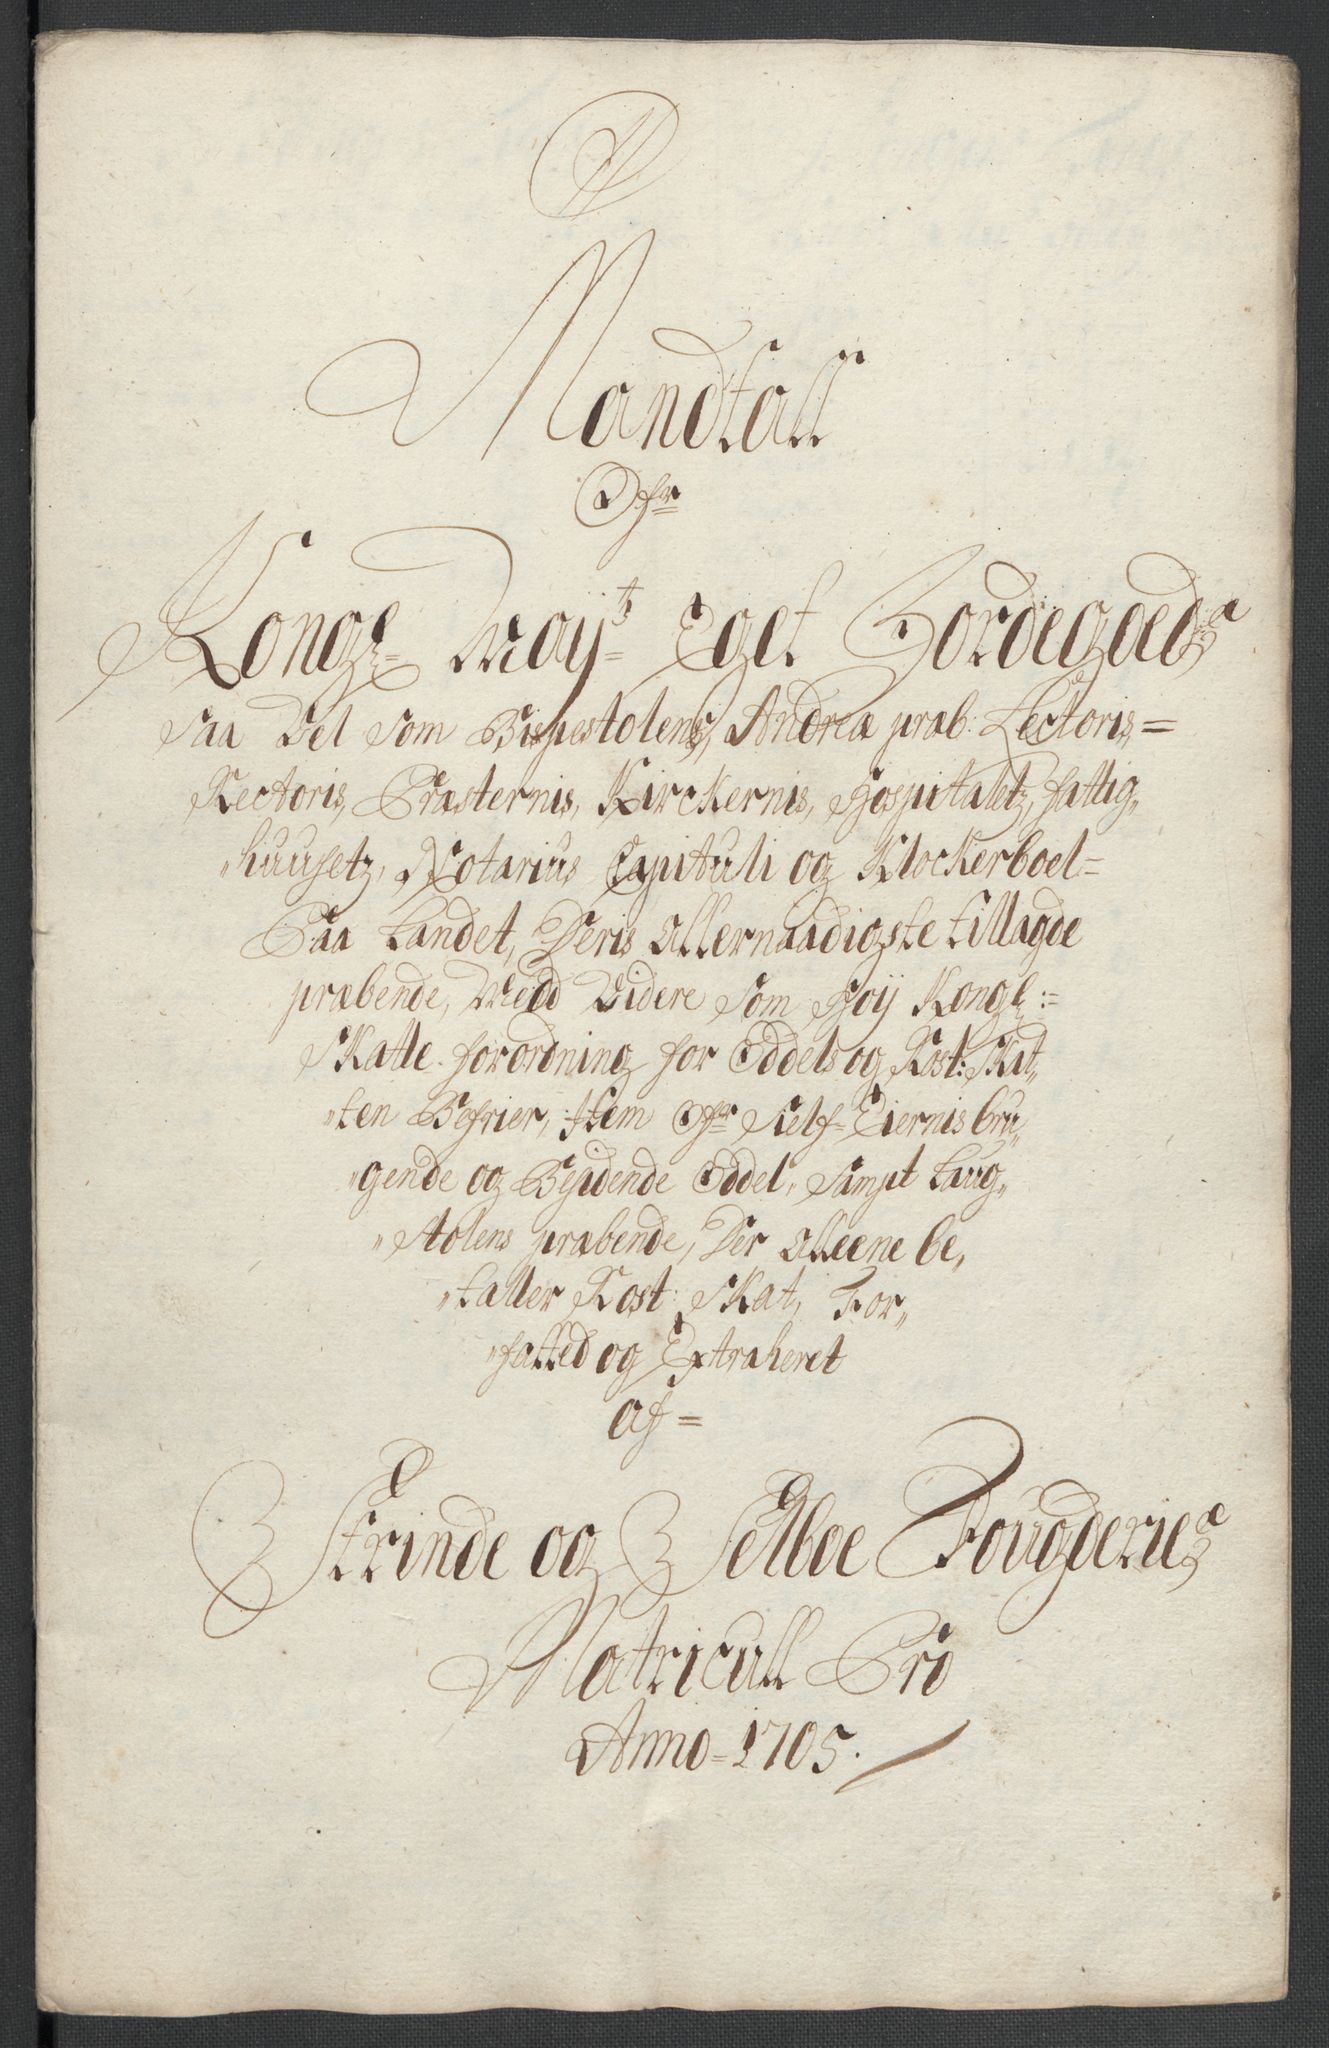 Mandtall
Ofr
Kongl= Mayts= Eget Jordegoeds
Saa Vel som Bispestolens, Andreæ præb: Lectoris=
Rectoris, Præsternis, Kirckernis, Hospitaletz, fattig„
„huusetz, Notarius Capituli og Klockerboel=
Paa Landet, Deris allernaadigste tillagde
præbende, Med Videre som Høy Kongl:=
Skatte-forordning for Oddels og Rost: Skat„
„ten Befrier, Item Ofr Self=Eiernis bru„
„gende og Besidende Oddel, Sampt Laug„
„Stolens præbende, Der alleene be„
„taller Rost: Skat, For„
„fatted og Extraheret
af=
Strinde og Selboe Fougderies
Matricull Pro
Anno=1705.